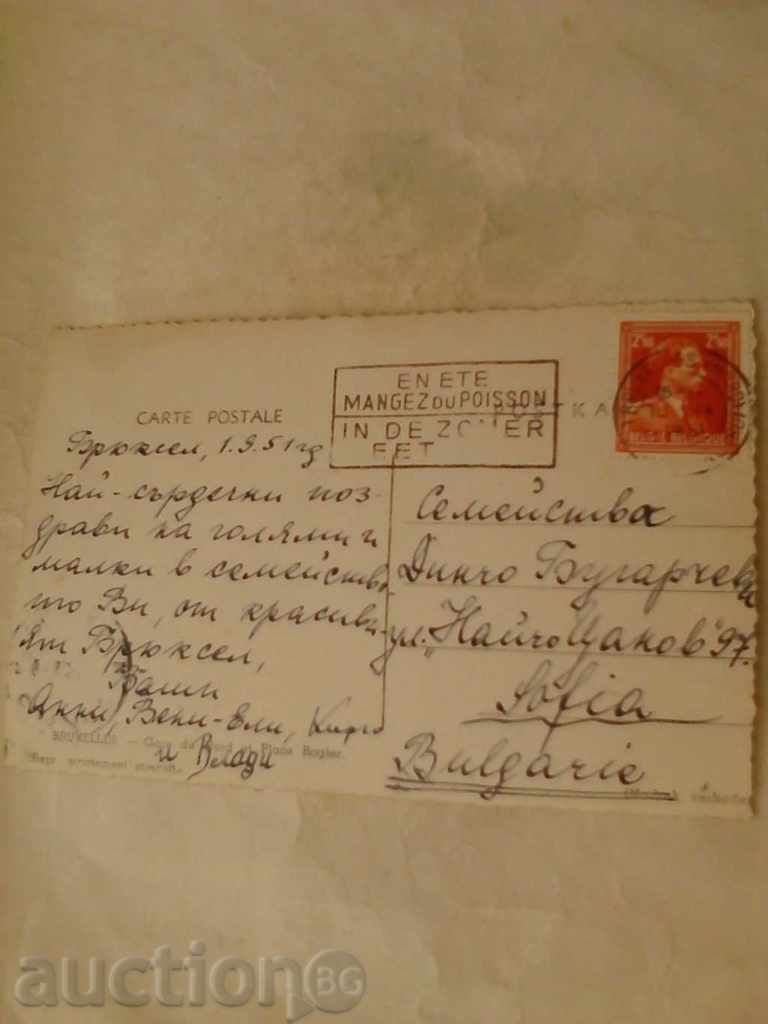 CARTE POSTALE
POSTKA
EN ETE
MANGEZ DU POISSON
IN DE ZOMER
EET
2,50 2,50
BELGIE BELGIQUE
Брюксел, 1.9.51 гд
Най-сърдечни поз-
драви на голями и
малки в семейств
то Ви, от красиви-
ят Брюксел,
Ваши
Анни, Вени-Ели,
и Влади
Семейства
Динчо Бугарчеви
ул. "Найчо Цанов" 97
Sofia
Bulgarie
BRUXELLES - Place Rogier.
auction BG